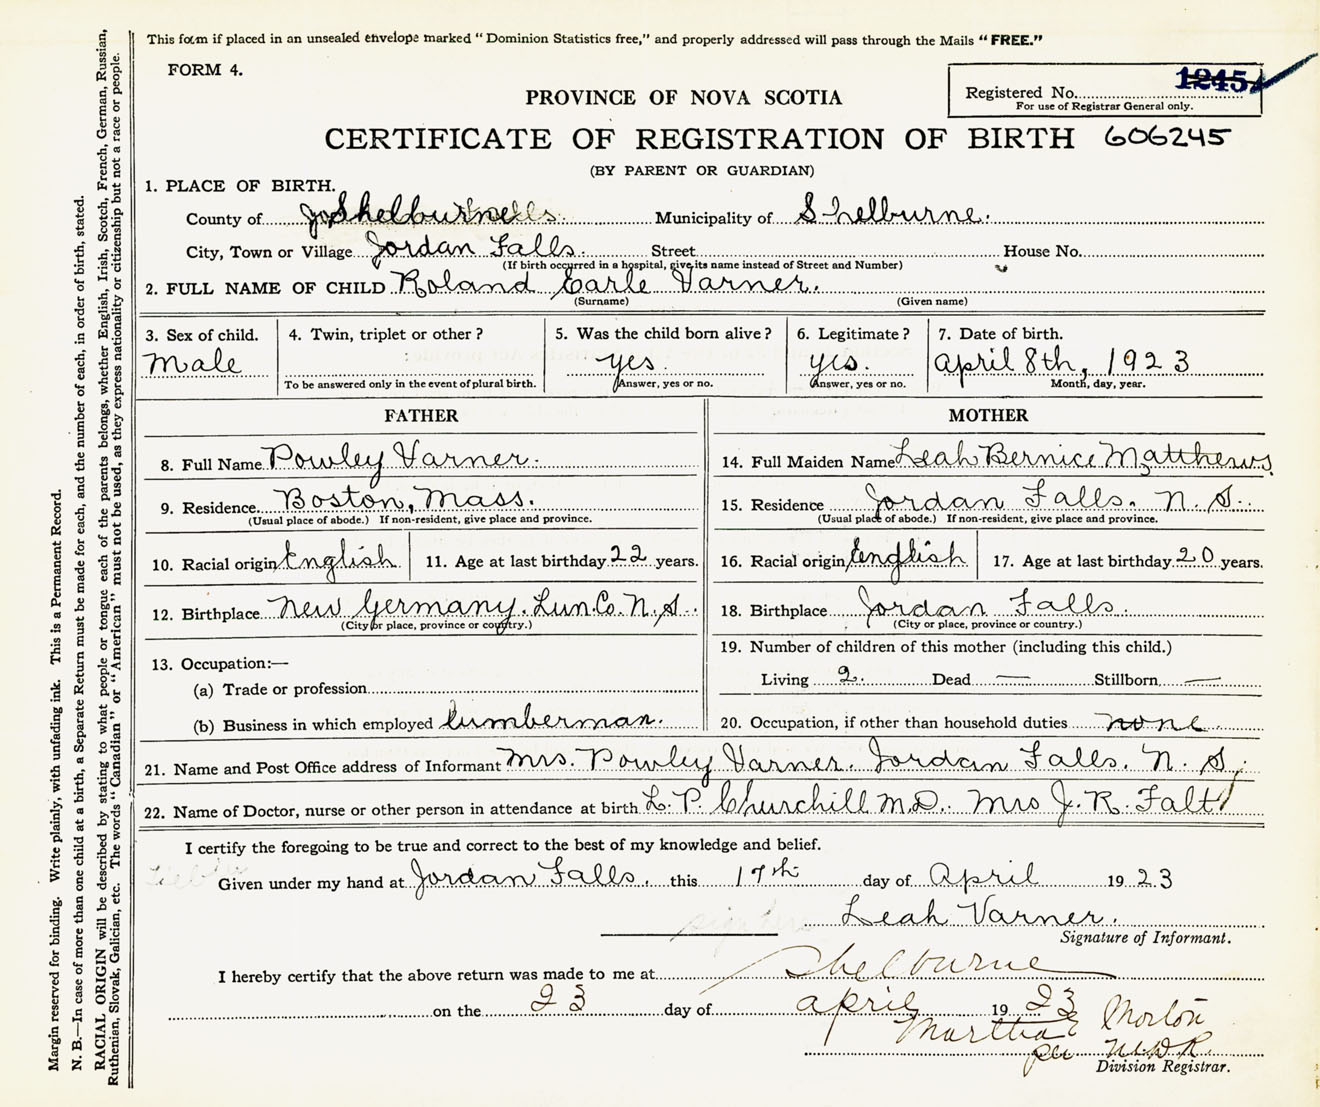 This form if placed in an unsealed envelope marked "Dominion Statistics free," and properly addressed will pass through the Mails "FREE."
FORM 4.
1245
Registered No.
For use of Registrar General only.
PROVINCE OF NOVA SCOTIA
CERTIFICATE OF REGISTRATION OF BIRTH 606245
(BY PARENT OR GUARDIAN)
1. PLACE OF BIRTH.
County of Shelburne Municipality of Shelburne.
City, Town or Village Jordan Falls. Street House No.
(If birth occurred in a hospital, give its name instead of Street and Number)
2. FULL NAME OF CHILD Roland Earle Varner.
(Surname) (Given name)
3. Sex of child. 4. Twin, triplet or other? 5. Was the child born alive? 6. Legitimate? 7. Date of birth.
Male yes. yes. April 8th, 1923
To be answered only in the event of plural birth. Answer, yes or no. Answer, yes or no. Month, day, year.
FATHER MOTHER
8. Full Name Powley Varner. 14. Full Maiden Name Leah Bernice Matthews.
9. Residence Boston, Mass. 15. Residence Jordan Falls. N. S.
(Usual place of abode.) If non-resident, give place and province. (Usual place of abode.) If non-resident, give place and province.
10. Racial origin English 11. Age at last birthday 22 years. 16. Racial origin English 17. Age at last birthday 20 years.
12. Birthplace New Germany. Lun. Co. N. S. 18. Birthplace Jordan Falls.
(City or place, province or country.) (City or place, province or country.)
19. Number of children of this mother (including this child.)
13. Occupation:—
Living 2. Dead — Stillborn —
(a) Trade or profession
(b) Business in which employed lumberman. 20. Occupation, if other than household duties none.
21. Name and Post Office address of Informant Mrs. Powley Varner. Jordan Falls. N. S.
22. Name of Doctor, nurse or other person in attendance at birth L. P. Churchill M.D. Mrs J. R. Falt
I certify the foregoing to be true and correct to the best of my knowledge and belief.
Given under my hand at Jordan Falls. this 17th day of April 1923
sign here Leah Varner.
Signature of Informant.
I hereby certify that the above return was made to me at Shelburne
on the 23 day of April 1923
Martha E Morton
per M.D.R.
Division Registrar.
Margin reserved for binding. Write plainly, with unfading ink. This is a Permanent Record.
N. B.—In case of more than one child at a birth, a Separate Return must be made for each, and the number of each, in order of birth, stated.
RACIAL ORIGIN will be described by stating to what people or tongue each of the parents belongs, whether English, Irish, Scotch, French, German, Russian,
Ruthenian, Slovak, Galician, etc. The words "Canadian" or "American" must not be used, as they express nationality or citizenship but not a race or people.